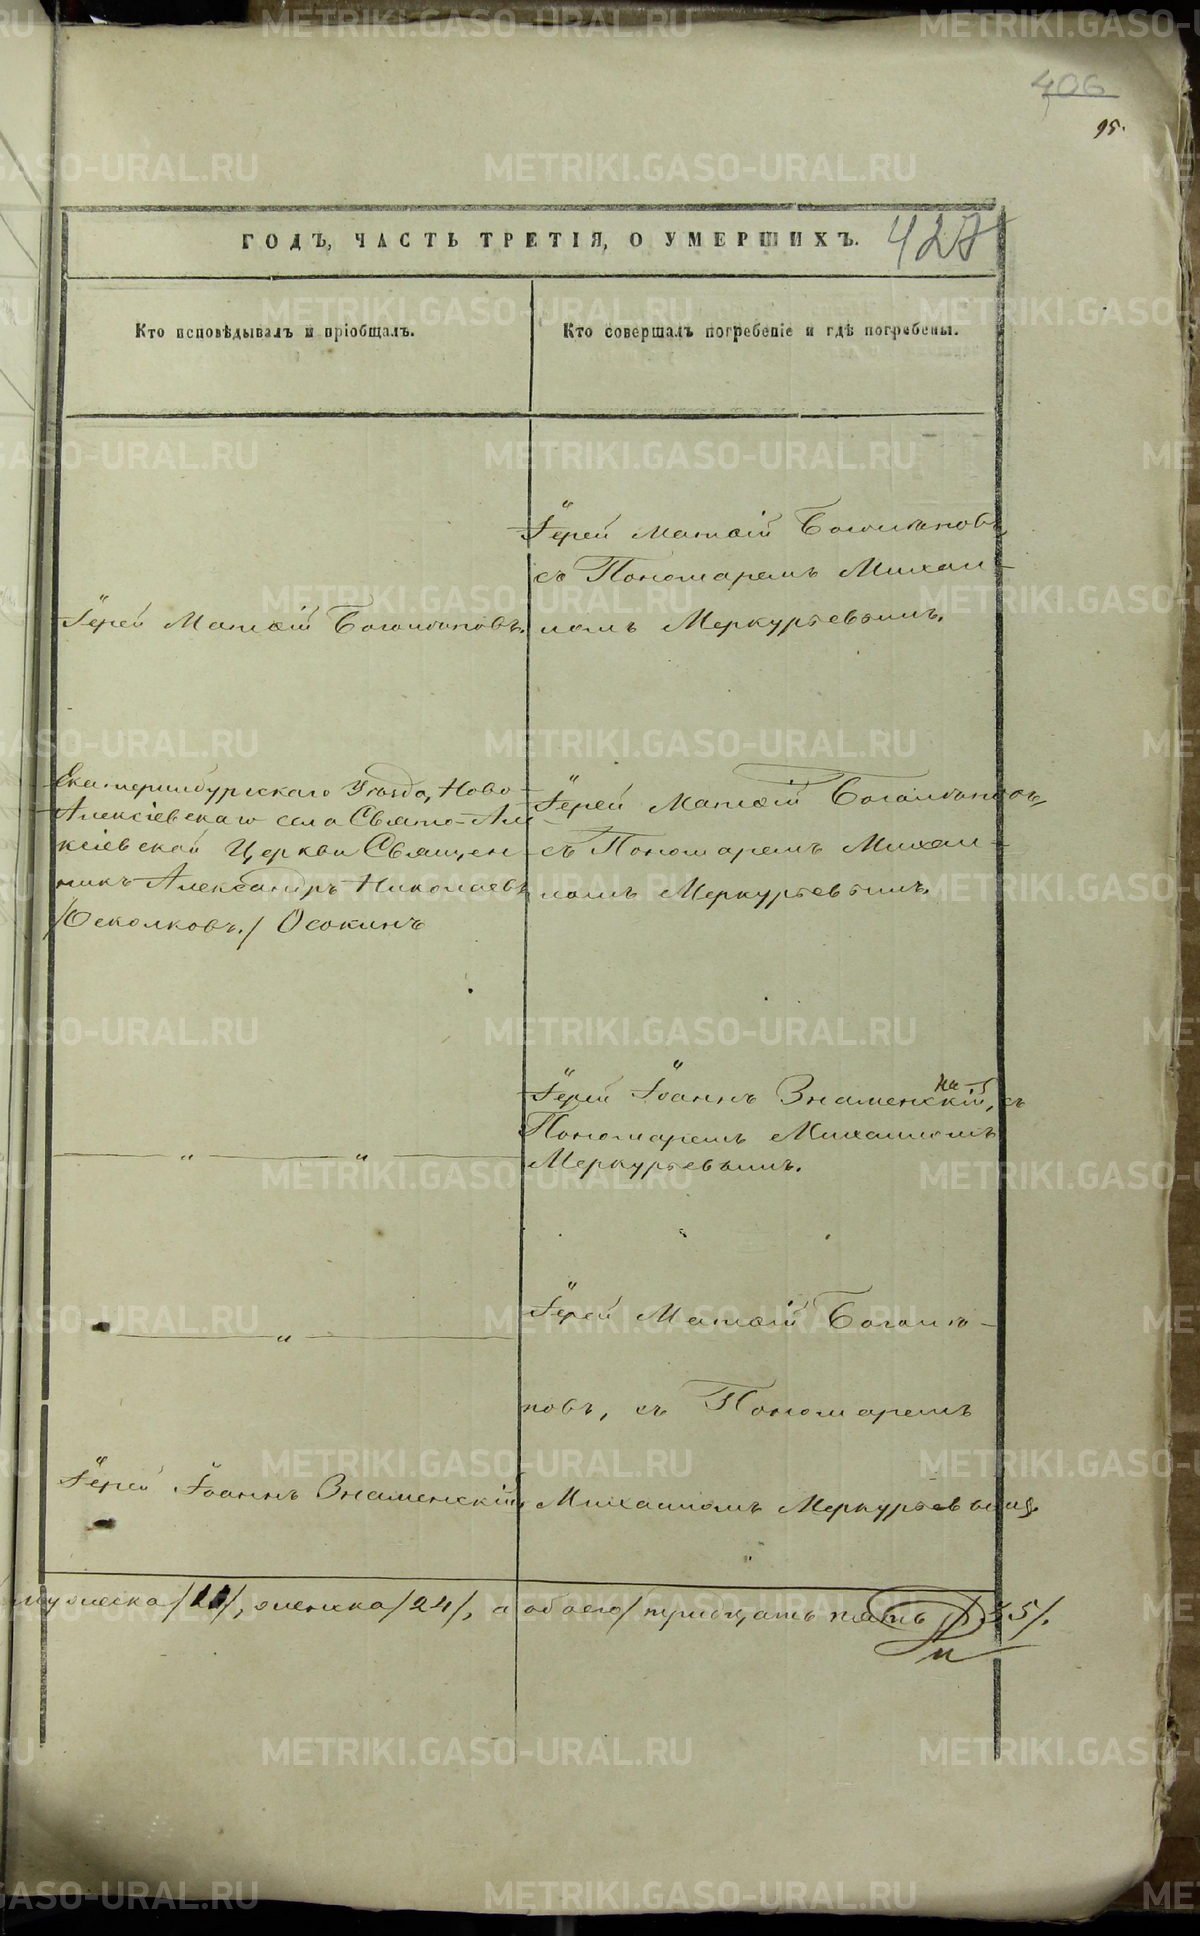 406
95.
ГОДЪ, ЧАСТЬ ТРЕТІЯ, О УМЕРШИХЪ.
427
Кто исповѣдывалъ и пріобщалъ.
Кто совершалъ погребеніе и гдѣ погребены.
Іерей Матѳій Боголюповъ.
Іерей Матѳій Боголюповъ
съ Пономаремъ Михаи-
ломъ Меркурьевымъ.
Екатеринбургскаго Уѣзда, Ново-
Алексіевскаго села Свято-Але-
ксіевской Церкви Священ-
никъ Александръ Николаевъ
/Осколковъ./ Осокинъ
Іерей Матѳій Боголюповъ,
съ Пономаремъ Михаи-
ломъ Меркурьевымъ.
— „ — „ —
Іерей Іоаннъ Знаменскій, съ
Пономаремъ Михаиломъ
Меркурьевымъ.
— „ —
Іерей Матѳій Боголю-
повъ, съ Пономаремъ
Іерей Іоаннъ Знаменскій,
Михаиломъ Меркурьевымъ.
мужеска /11/, женска /24/, а обоего /тридцать пять /35/.
METRIKI.GASO-URAL.RU